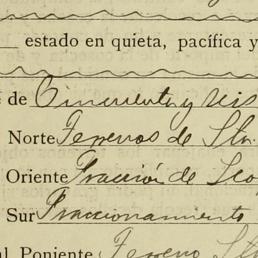 estado en quieta, pacífica y
de Cincuenta y seis
Norte Terrenos de Sta.
Oriente Fracción de
Sur Fraccionamiento
al Poniente Terreno Sta